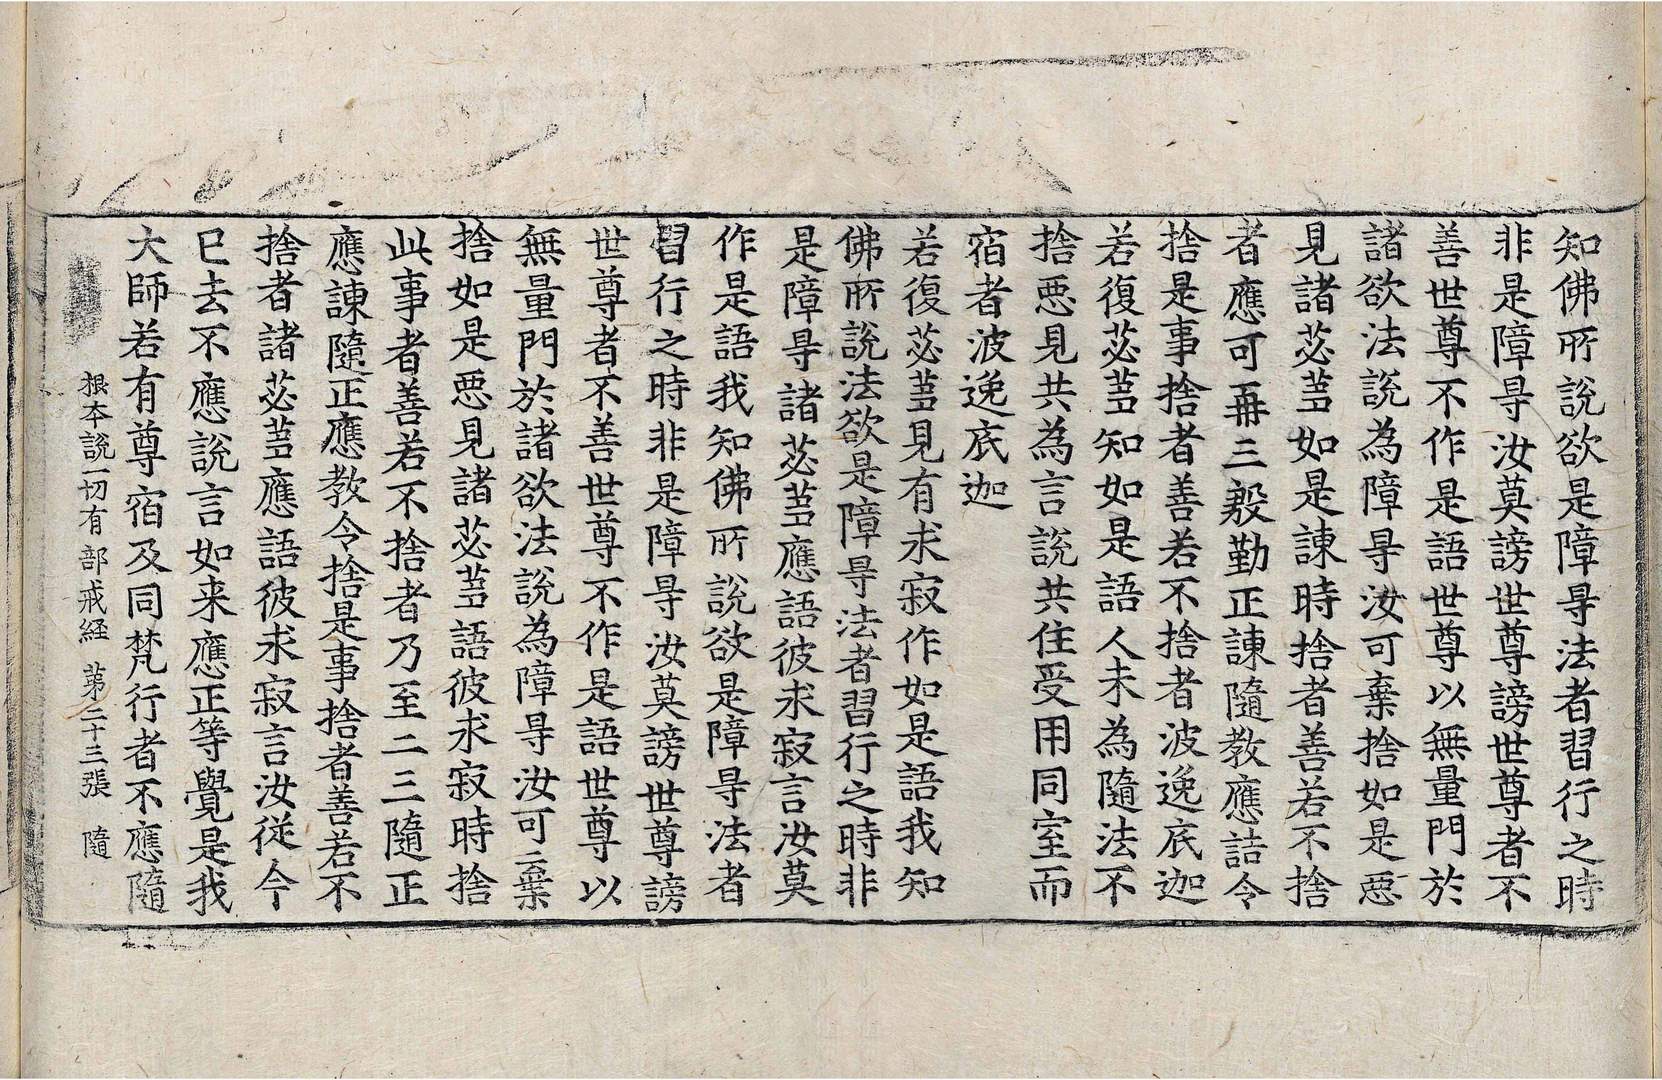 知佛所說欲是障㝵法者習行之時
非是障㝵汝莫謗世尊謗世尊者不
善世尊不作是語世尊以無量門於
諸欲法說為障㝵汝可棄捨如是悪
見諸苾蒭如是諫時捨者善若不捨
者應可再三殷勤正諫隨教應詰令
捨是事捨者善若不捨者波逸底迦
若復苾蒭知如是語人未為隨法不
捨悪見共為言說共住受用同室而
宿者波逸底迦
若復苾蒭見有求寂作如是語我知
佛所說法欲是障㝵法者習行之時非
是障㝵諸苾蒭應語彼求寂言汝莫
作是語我知佛所說欲是障㝵法者
習行之時非是障㝵汝莫謗世尊謗
世尊者不善世尊不作是語世尊以
無量門於諸欲法說為障㝵汝可棄
捨如是悪見諸苾蒭語彼求寂時捨
此事者善若不捨者乃至二三隨正
應諫隨正應教令捨是事捨者善若不
捨者諸苾蒭應語彼求寂言汝從今
已去不應說言如来應正等覺是我
大師若有尊宿及同梵行者不應隨
根本說一切有部戒経 第二十三張 隨